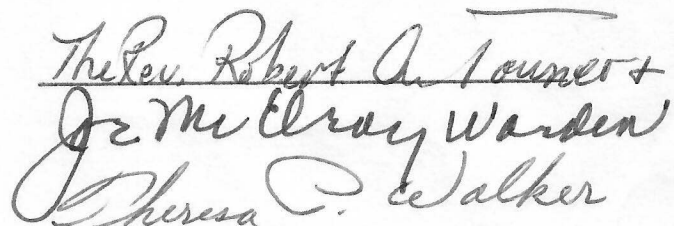 The Rev. Robert A. Tourner +
Joe McElroy Warden
Theresa P. Walker